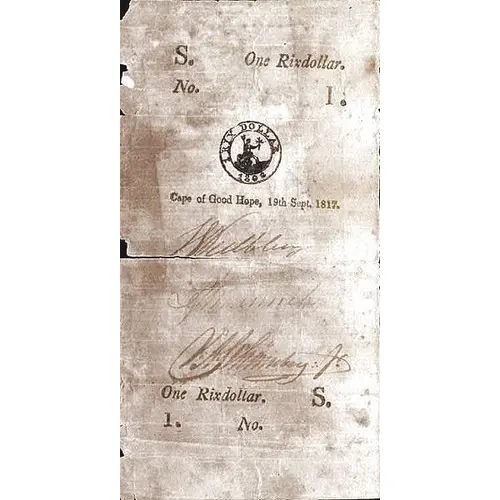 S. One Rixdollar.
No. 1.
1 RIX DOLLAR
1804
Cape of Good Hope, 19th Sept. 1817.
One Rixdollar. S.
1. No.